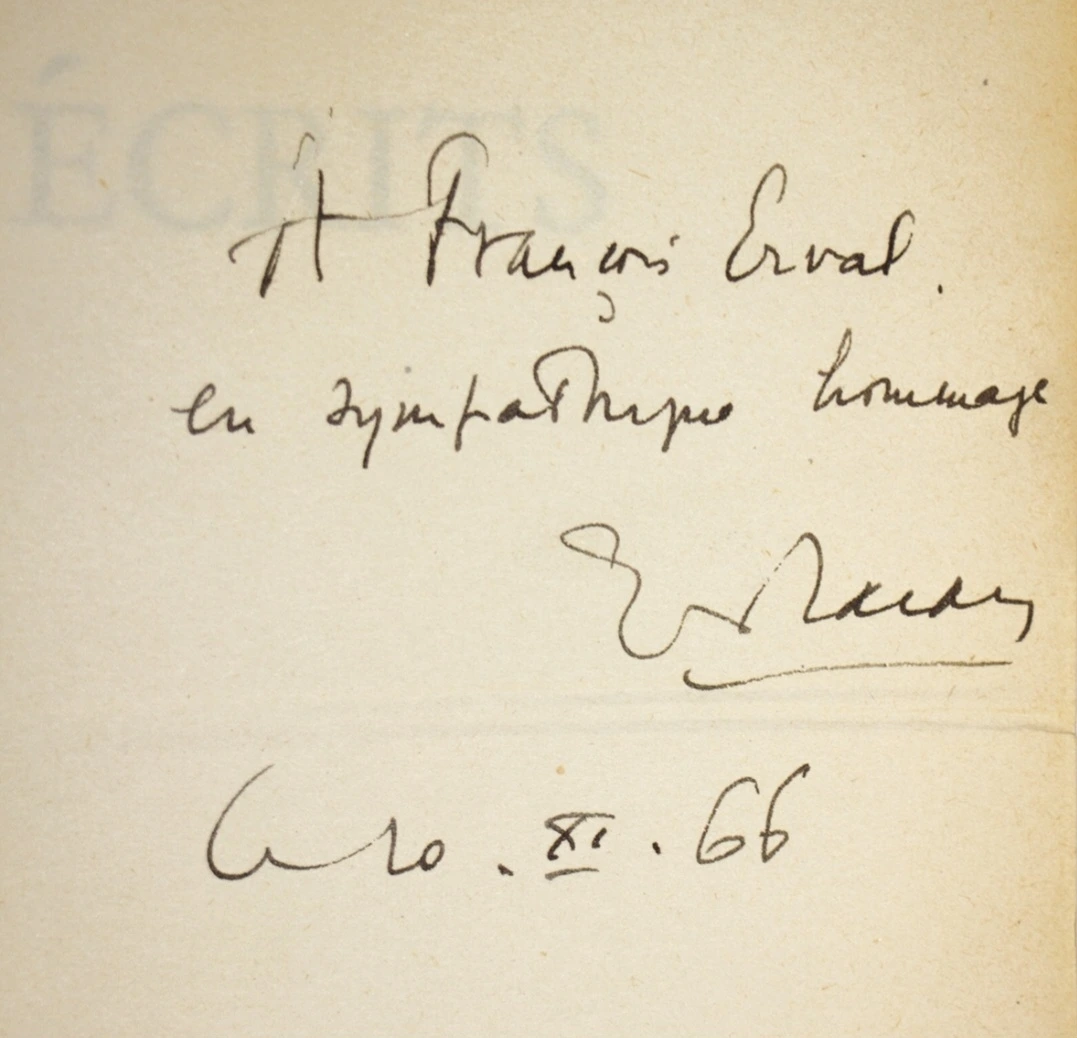 ÉCRITS
A François Erval.
en sympathique hommage
J. Lacan
Ce 10 . XI . 66